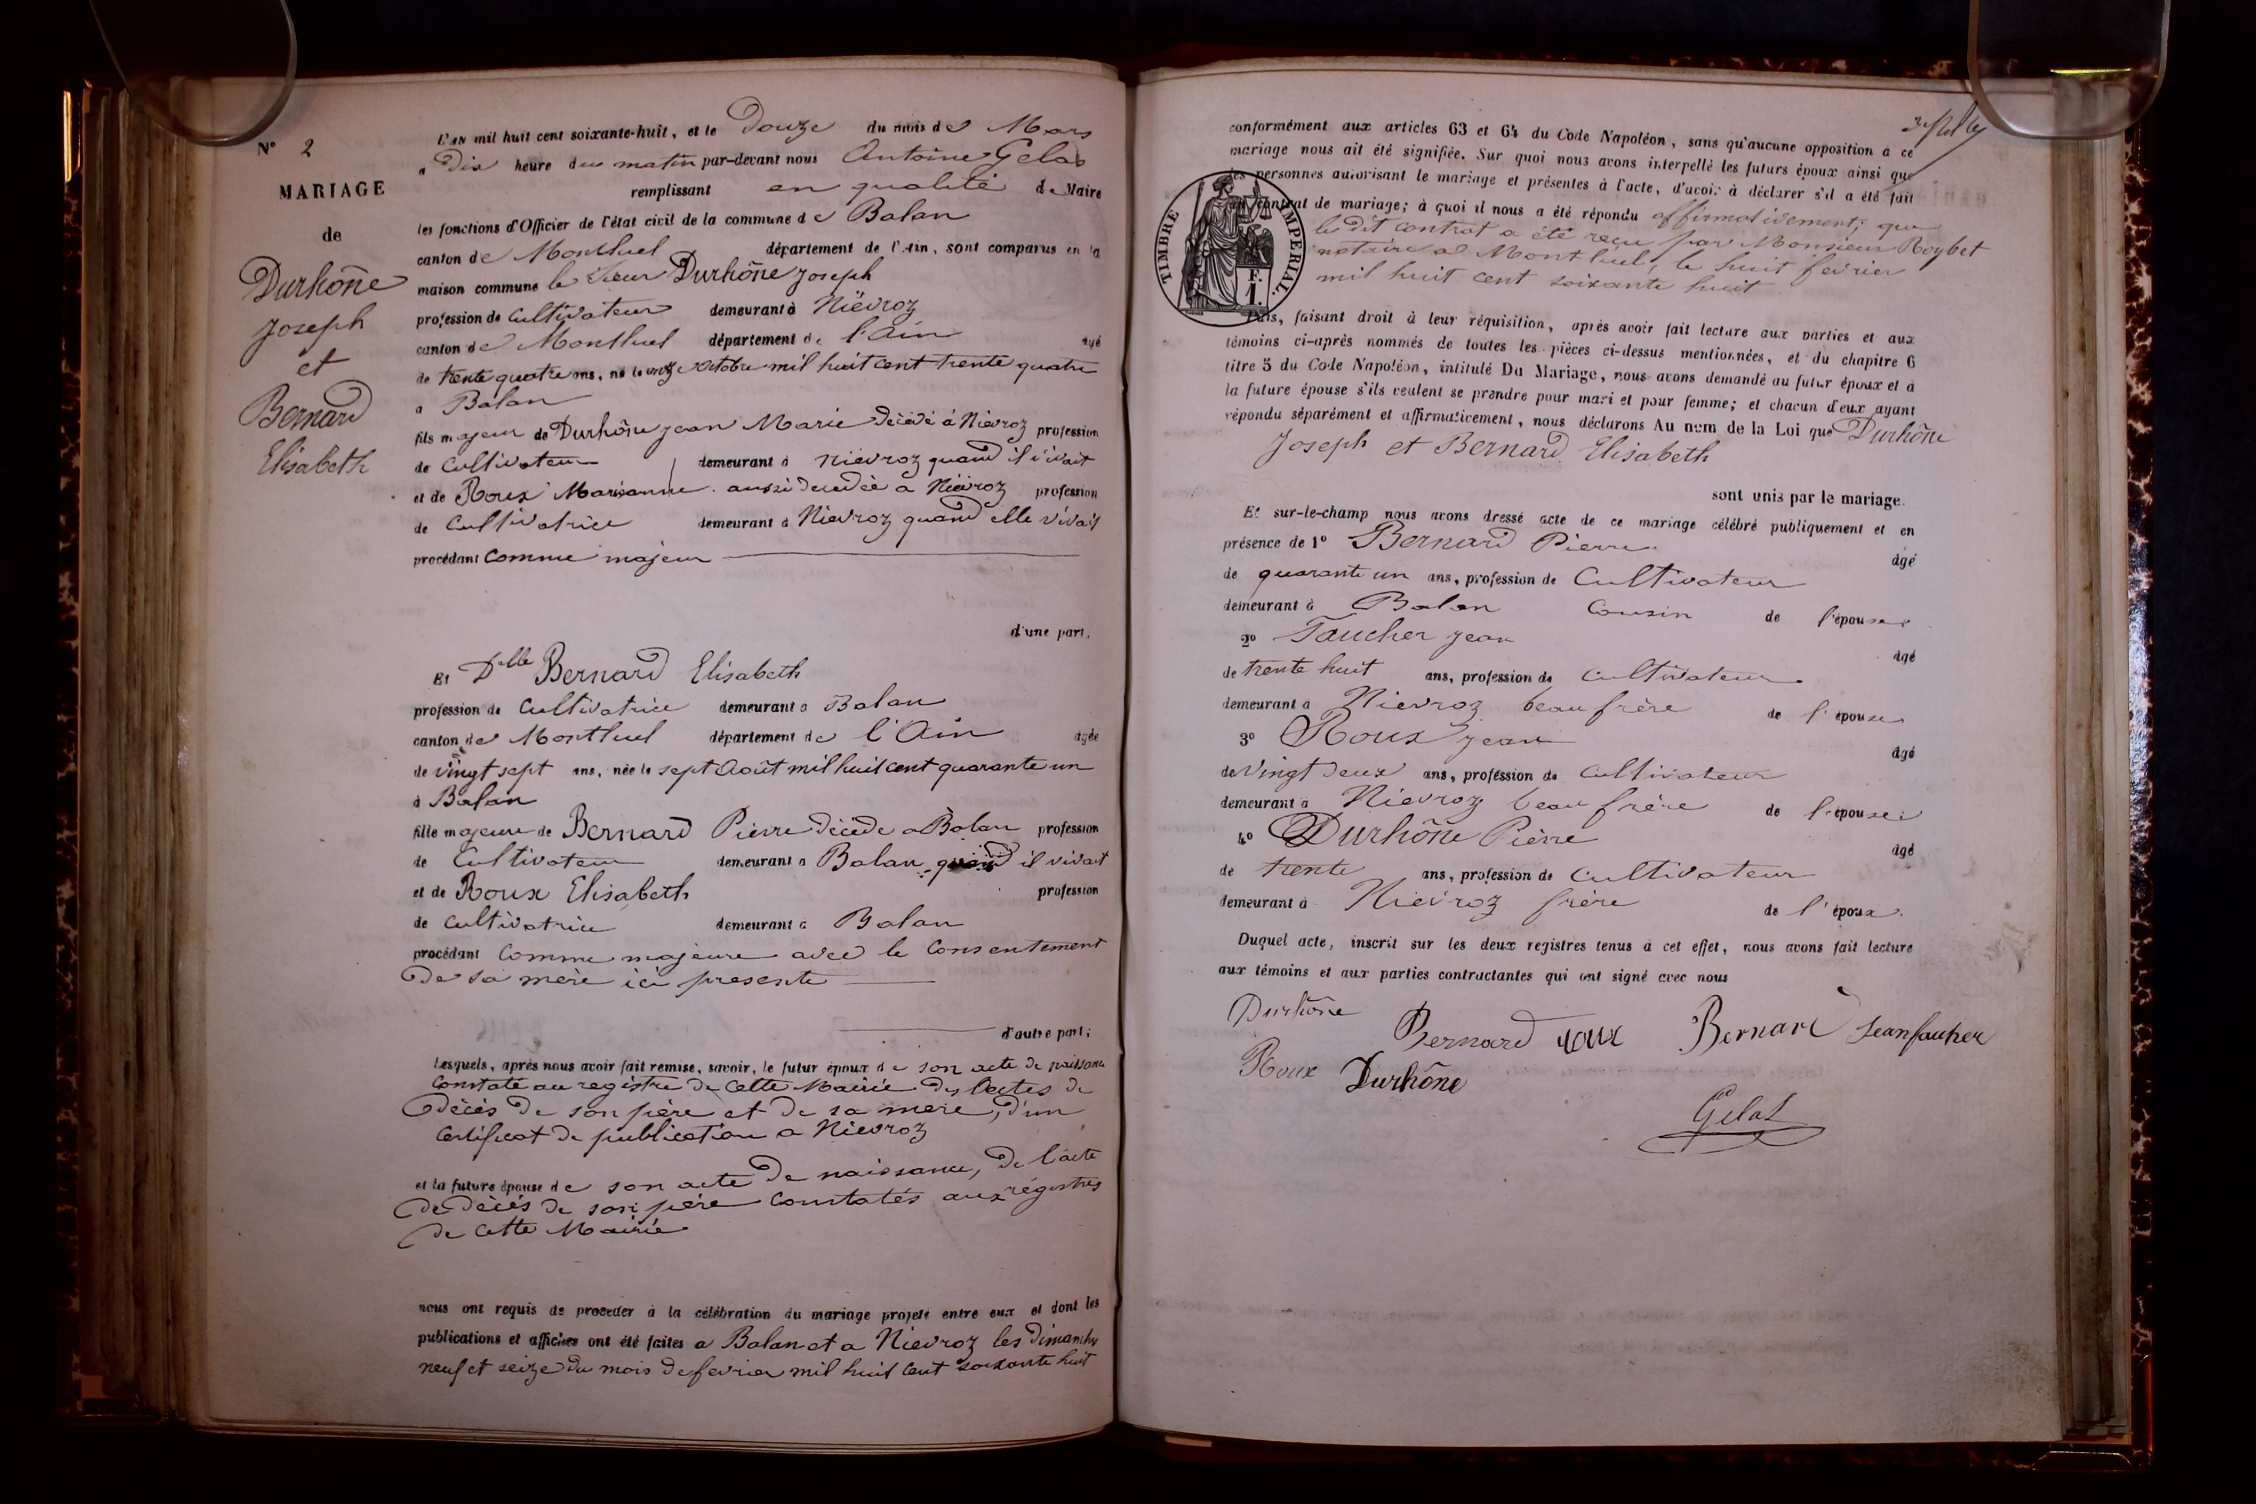 N° 2
MARIAGE
de
Durhône
Joseph
et
Bernard
Elisabeth
L'an mil huit cent soixante-huit, et le Douze du mois de Mars
a Dix heure du matin par-devant nous Antoine Gelas
remplissant en qualité de Maire
les fonctions d'Officier de l'état civil de la commune de Balan
canton de Montluel département de l'Ain, sont comparus en la
maison commune le sieur Durhône Joseph
profession de Cultivateur demeurant à Niévroz
canton de Montluel département de l'Ain âgé
de trente quatre ans, né le onze octobre mil huit cent trente quatre
a Balan
fils majeur de Durhône Jean Marie décédé à Nievroz profession
de Cultivateur demeurant à Nievroz quand il vivait
et de Roux Marianne aussi decedée a Nievroz profession
de Cultivatrice demeurant à Nievroz quand elle vivait
procédant comme majeur
d'une part,
Et Delle Bernard Elisabeth
profession de Cultivatrice demeurant a Balan
canton de Montluel département de l'Ain âgée
de vingt sept ans, née le sept Août mil huit cent quarante un
à Balan
fille majeure de Bernard Pierre décedé a Balan profession
de Cultivateur demeurant a Balan quand il vivait
et de Roux Elisabeth profession
de Cultivatrice demeurant à Balan
procédant Comme majeure avec le Consentement
De sa mère ici presente
d'autre part;
Lesquels, après nous avoir fait remise, savoir, le futur époux de son acte de naissance
Constaté au registre de cette Mairie des Actes de
décès De son père et de sa mere, d'un
certificat de publication a Nievroz
et la future épouse de son acte De naissance, De l'acte
de décès de son père Constatés aux régistres
de cette Mairie
nous ont requis de proceder à la célébration du mariage projeté entre eux et dont les
publications et affiches ont été faites a Balan et a Nievroz les Dimanches
neuf et seize du mois de fevrier mil huit cent soixante huit
conformément aux articles 63 et 64 du Code Napoléon, sans qu'aucune opposition a ce
mariage nous ait été signifiée. Sur quoi nous avons interpellé les futurs époux ainsi que
les personnes autorisant le mariage et présentes à l'acte, d'avoir à déclarer s'il a été fait
un contrat de mariage; à quoi il nous a été répondu affirmativement; que
le dit contrat a été reçu par Monsieur Roybet
notaire a Montluel, le huit fevrier
mil huit cent soixante huit
TIMBRE IMPERIAL.
F.
1.
Puis, faisant droit à leur réquisition, après avoir fait lecture aux parties et aux
témoins ci-après nommés de toutes les pièces ci-dessus mentionnées, et du chapitre 6
titre 5 du Code Napoléon, intitulé Du Mariage, nous avons demandé au futur époux et à
la future épouse s'ils veulent se prendre pour mari et pour femme; et chacun d'eux ayant
répondu séparément et affirmaticement, nous déclarons Au nom de la Loi que Durhône
Joseph et Bernard Elisabeth
sont unis par le mariage.
Et sur-le-champ nous avons dressé acte de ce mariage célébré publiquement et en
présence de 1° Bernard Pierre âgé
de quarante un ans, profession de Cultivateur
demeurant à Balan Cousin de l'épouse
2° Faucher Jean âgé
de trente huit ans, profession de Cultivateur
demeurant à Nievroz beau frère de l'épouse
3° Roux Jean âgé
de vingt deux ans, profession de Cultivateur
demeurant à Nievroz beau frère de l'épouse
4° Durhône Pierre âgé
de trente ans, profession de Cultivateur
demeurant à Niévroz frère de l'époux.
Duquel acte, inscrit sur les deux registres tenus à cet effet, nous avons fait lecture
aux témoins et aux parties contractantes qui ont signé avec nous
Durhône
Bernard roux Bernard Jean faucher
Roux Durhône
Gelas